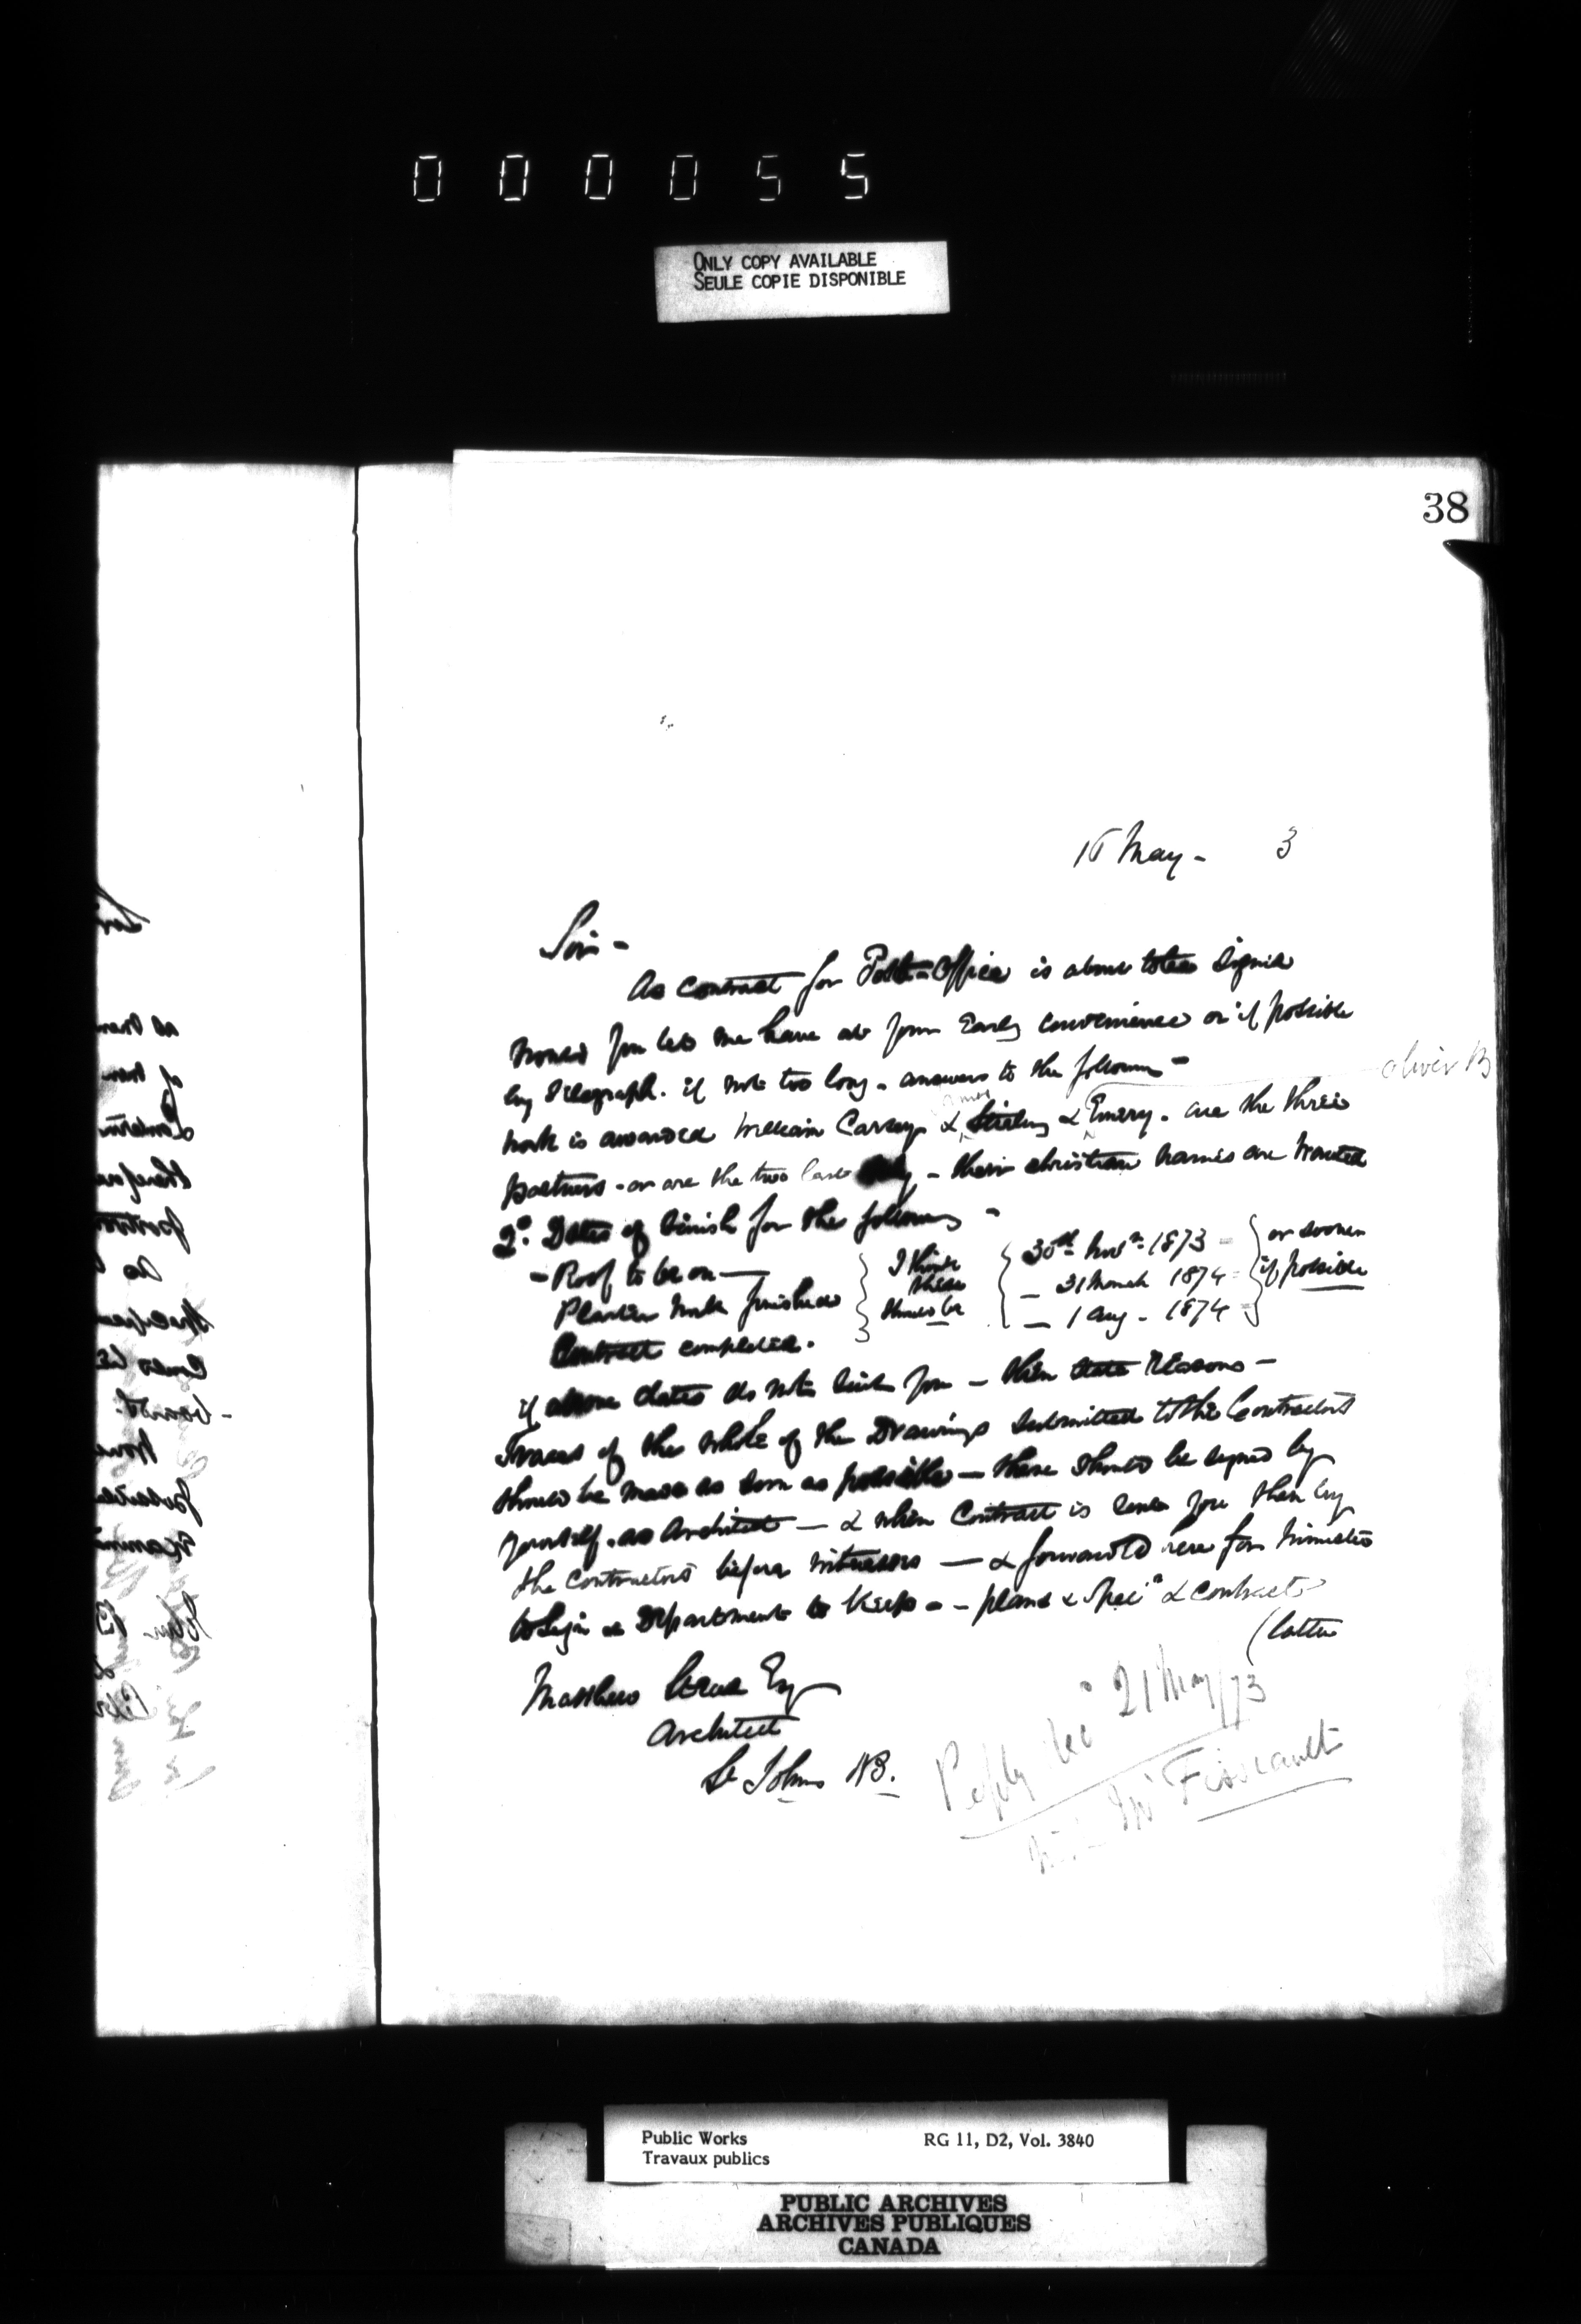 000055
ONLY COPY AVAILABLE
SEULE COPIE DISPONIBLE
38
May - 3
Sir -
As contract for Post-Office is about to be signed
would you let me have at your Early convenience or if possible
by Telegraph. if not too long - answers to the following -
Oliver B
work is awarded William & & Emery. are the three
partners - or are the two last only - their christian names are wanted
2º. Dates of finish for the following -
- Roof to be on —
Plaster work finished
Contract completed.
I think
these
should be
30th Novr. 1873 -
- 31 March 1874 -
- 1 Aug - 1874 -
or sooner
if possible
if above dates do not suit you - then state reasons -
Traces of the whole of the Drawings submitted to the Contractors
should be made as soon as possible - these should be signed by
yourself. as Architect - & when Contract is sent you then by
the contractors before witnesses - & forwarded here for Minister
to sign & Department to keep - - plans & Specn & contract
(latter
Matthew Stead Esq
Architect
St Johns NB.
Reply recd 21 May/73
Mr
Public Works
Travaux publics
RG 11, D2, Vol. 3840
PUBLIC ARCHIVES
ARCHIVES PUBLIQUES
CANADA